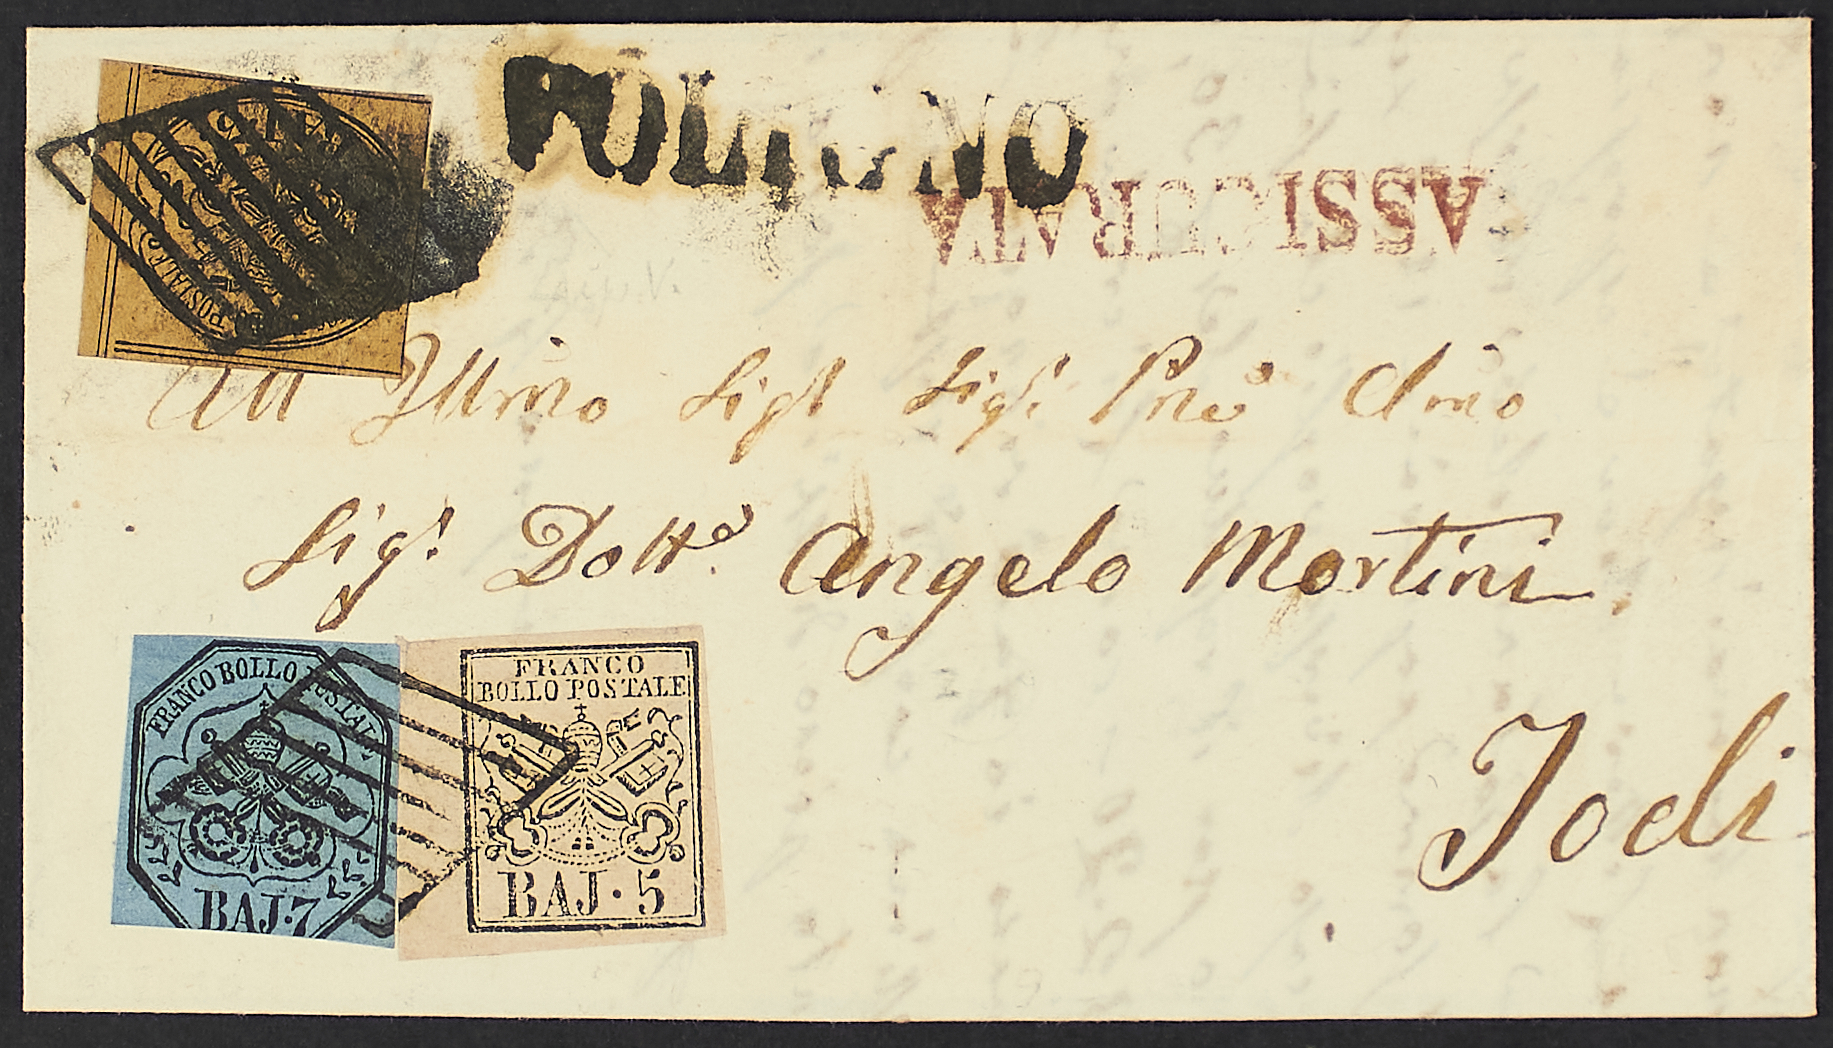 FOLIGNO
ASSICURATA
All Illmo Sigr Sigr Pne Clmo
Sigr Dotte Angelo Martini
Todi
FRANCO BOLLO POSTALE
BAJ·7
FRANCO
BOLLO POSTALE
BAJ·5
POSTALE
BAJ